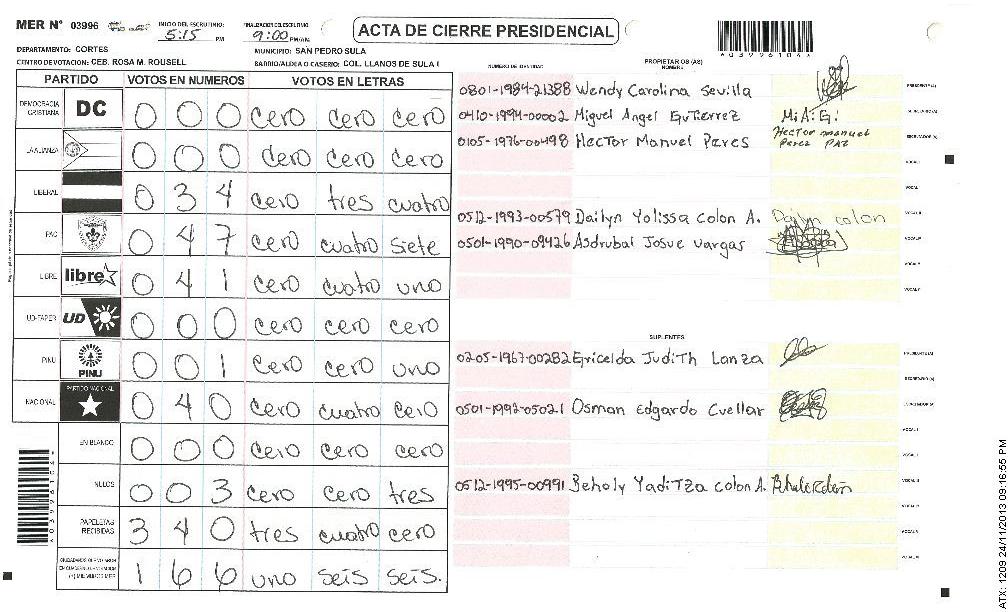 MER N° 03996 INICIO DEL ESCRUTINIO: 5:15 PM FINALIZACION DEL ESCRUTINIO: 9:00 PM/AM ACTA DE CIERRE PRESIDENCIAL
DEPARTAMENTO: CORTES MUNICIPIO: SAN PEDRO SULA
CENTRO DE VOTACION: CEB. ROSA M. ROUSELL BARRIO/ALDEA O CASERIO: COL. LLANOS DE SULA I
PARTIDO VOTOS EN NUMEROS VOTOS EN LETRAS
DEMOCRACIA CRISTIANA DC 0 0 0 cero cero cero
LA ALIANZA 0 0 0 cero cero cero
LIBERAL 0 3 4 cero tres cuatro
PAC 0 4 7 cero cuatro siete
LIBRE libre 0 4 1 cero cuatro uno
UD-FAPER UD 0 0 0 cero cero cero
PINU PINU 0 0 1 cero cero uno
NACIONAL PARTIDO NACIONAL 0 4 0 cero cuatro cero
EN BLANCO 0 0 0 cero cero cero
NULOS 0 0 3 cero cero tres
PAPELETAS RECIBIDAS 3 4 0 tres cuatro cero
1 6 6 uno seis seis.
A03996104
NUMERO DE IDENTIDAD PROPIETARIOS (AS) NOMBRE
0801-1984-21388 Wendy Carolina Sevilla PRESIDENTE(A)
0410-1994-00002 Miguel Angel Gutierrez M.A.G. SECRETARIO(A)
0105-1976-00498 Hector Manuel Peres Hector manuel Perez PAZ ESCRUTADOR(A)
VOCAL I
VOCAL II
0512-1993-00579 Dailyn Yolissa colon A. Dailyn colon VOCAL III
0501-1990-09426 Asdrubal Josue vargas VOCAL IV
VOCAL V
SUPLENTES
0205-1967-00282 Ericelda Judith Lanza PRESIDENTE(A)
SECRETARIO(A)
0501-1992-05021 Osman Edgardo Cuellar ESCRUTADOR(A)
VOCAL I
VOCAL II
0512-1995-00991 Beholy YadiTza colon A. VOCAL III
A03996104
ATX: 1209 24/11/2013 09:16:55 PM